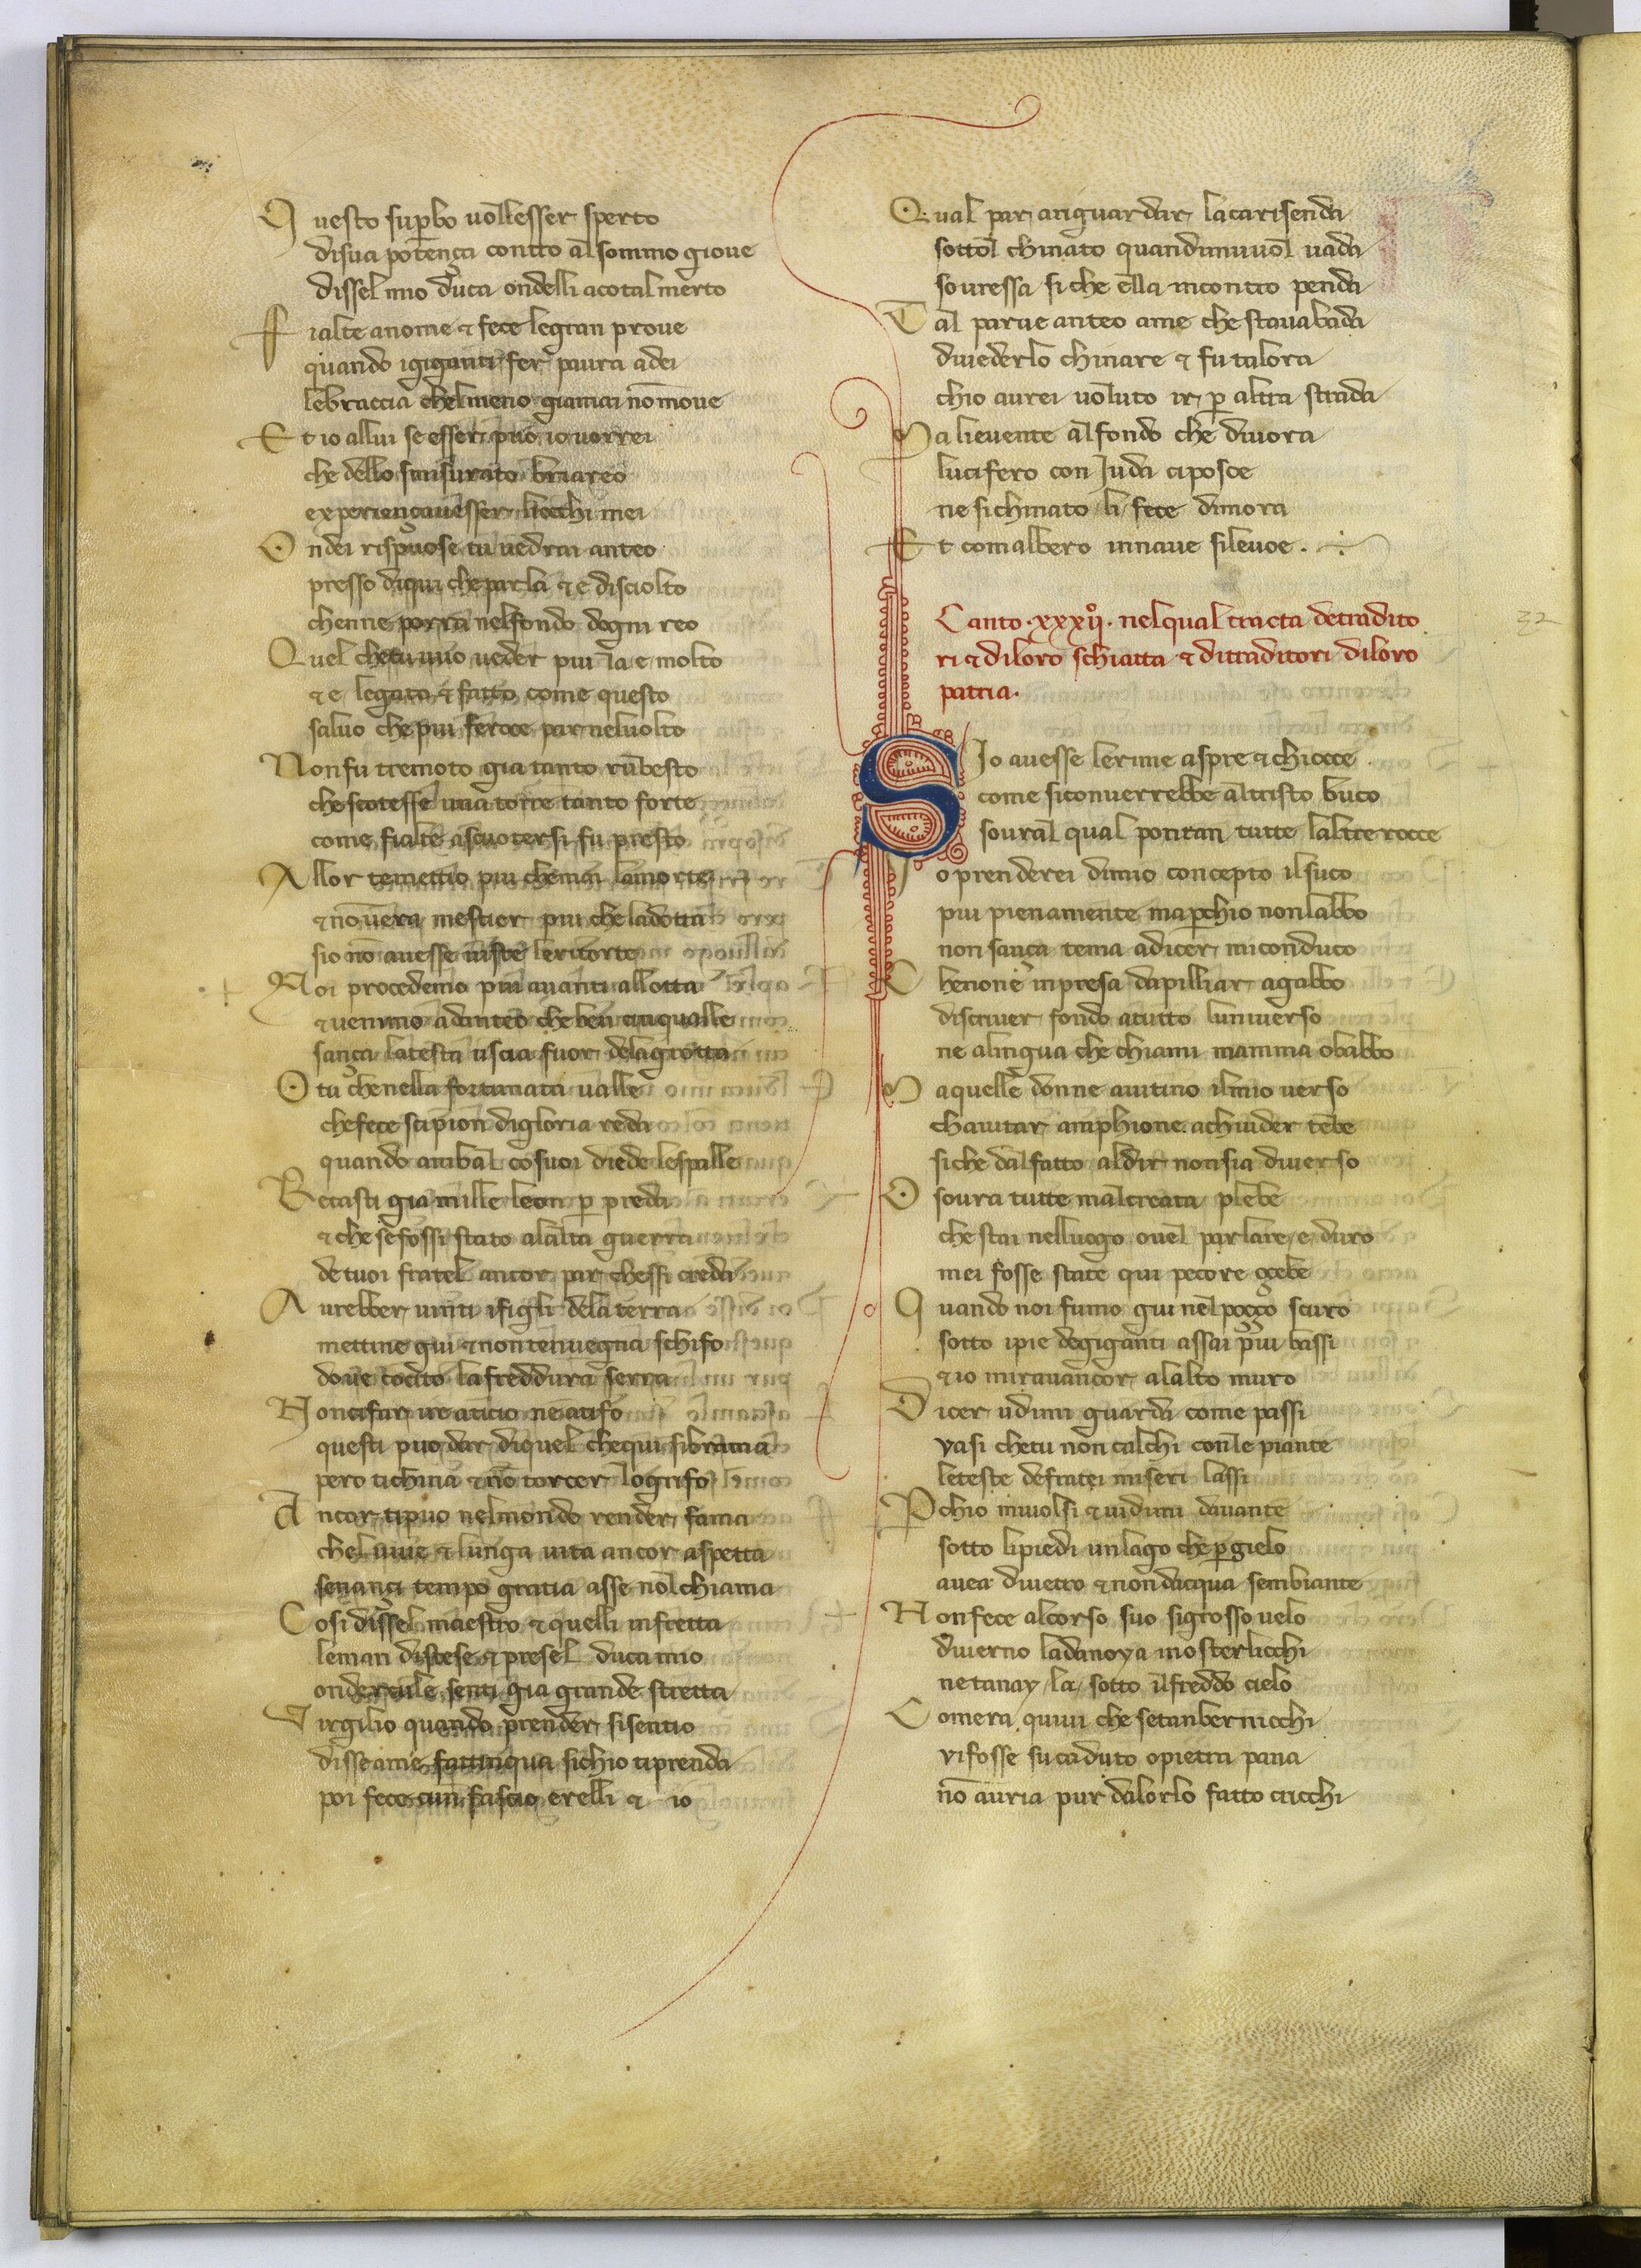 Questo sup̄bo uollesser sperto
disua potença contro al sommo gioue
dissel mio duca ondelli acotal merto
Fialte anome ⁊ fece legran proue
quando igiganti fer paura adei
lebraccia chelmeno giamai nōmoue
Et io allui se esser puo io uorrei
che dello smisurato briareo
experiençauesser liocchi mei
Ondei rispuose tu uedrai anteo
presso diqui cheparla ⁊ e disciolto
chenne porra nelfondo dogni reo
Quel chetu uuo ueder piu la e molto
⁊ e legato ⁊ fatto come questo
saluo che piu feroce par neluolto
Non fu tremoto gia tanto rubesto
che scotesse una torre tanto forte
come fialte ascuotersi fu presto
Allor temettio piu chemai lamorte
⁊ nouera mestier piu che ladotta
sio nō auesse uiste leritorte
Noi procedemo piu auanti allotta
⁊ uenimo adanteo che ben cinqualle
sança latesta uscia fuor delagrotta
O tu chenella fortunata ualle
chefece scipion digloria reda
quando anibal cosuoi diede lespalle
Recasti gia mille leon p̄ preda
⁊ che sefossi stato alalta guerra
de tuoi fratel ancor par chessi creda
Aurebber uinti ifigli dela terra
mettine giu ⁊ nontenuegna schifo
doue cocito lafreddura serra
Noncifar ire aticio ne atifo
questi puo dar diquel chequi sibrama
pero tichina ⁊ nō torcer logrifo
Ancor tipuo nelmondo render fama
chel uiue ⁊ lunga uita ancor aspetta
senançi tempo gratia asse nol chiama
Cosi dissel maestro ⁊ quelli infretta
leman distese ⁊ presel duca mio
ondercule senti gia grande stretta
Virgilio quando prender sisentio
disseame fattinqua sichio tiprenda
poi fece cun fascio erelli ⁊ io
Qual par ariguardar lacarisenda
sottol chinato quandunuuol uada
souressa si che ella incontro penda
Tal parue anteo ame che stauabada
diuederlo chinare ⁊ fu talora
chio aurei uoluto ir p̄ altra strada
Ma lieuente alfondo che diuora
lucifero con Juda ciposoe
ne sichinato li fece dimora
Et comalbero innaue sileuoe.
Canto .xxxij. nelqual tracta detradito
ri ⁊ diloro schiatta ⁊ ditraditori diloro
patria.
SJo auesse lerime aspre ⁊ chiocce
come siconuerrebbe altristo buco
soural qual pontan tutte laltrerocce
Io prenderei dimio concepto il suco
piu pienamente map̄chio nonlabbo
non sança tema adicer miconduco
Che none inpresa dapilliar agabbo
discriuer fondo atutto luniuerso
ne alingua che chiami mamma obabbo
Ma quelle donne aiutino ilmio uerso
chaiutar amphione achiuder tebe
siche dalfatto aldir nonsia diuerso
O soura tutte malcreata plebe
che stai nelluogo ouel parlare e duro
mei foste state qui pecore oçebe
Quando noi fumo giu nel poçço scuro
sotto ipie degiganti assai piu bassi
⁊ io mirauancor alalto muro
Dicer udimi guarda come passi
vasi chetu non calchi conle piante
leteste defratei miseri lassi
Pchio miuolsi ⁊ uidimi dauante
sotto lipiedi unlago che p̄ gielo
auea diuetro ⁊ non dacqua sembiante
Non fece alcorso suo sigrosso uelo
diuerno ladanoya inosterlicchi
ne tanay la sotto ilfreddo cielo
Comera quiui che setanbernicchi
vifosse su caduto opietra pana
nō auria pur dalorlo fatto cricchi
32